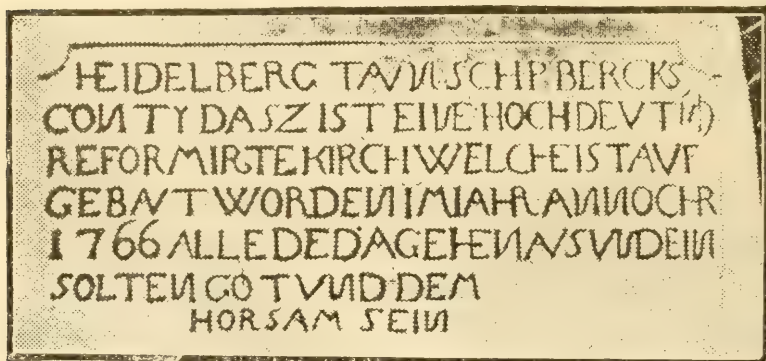 HEIDELBERG TAVNSCHP BERCKS
CONTY DASZ IST EINE HOCH
REFORMIRTE KIRCH WELCHE IST AVF
GEBAVT WORDEN IM IAHR ANNO CHR
1766 ALLE DE DA GEHEN AVS VND EIN
SOLTEN GOT VND DEM
HORSAM SEIN